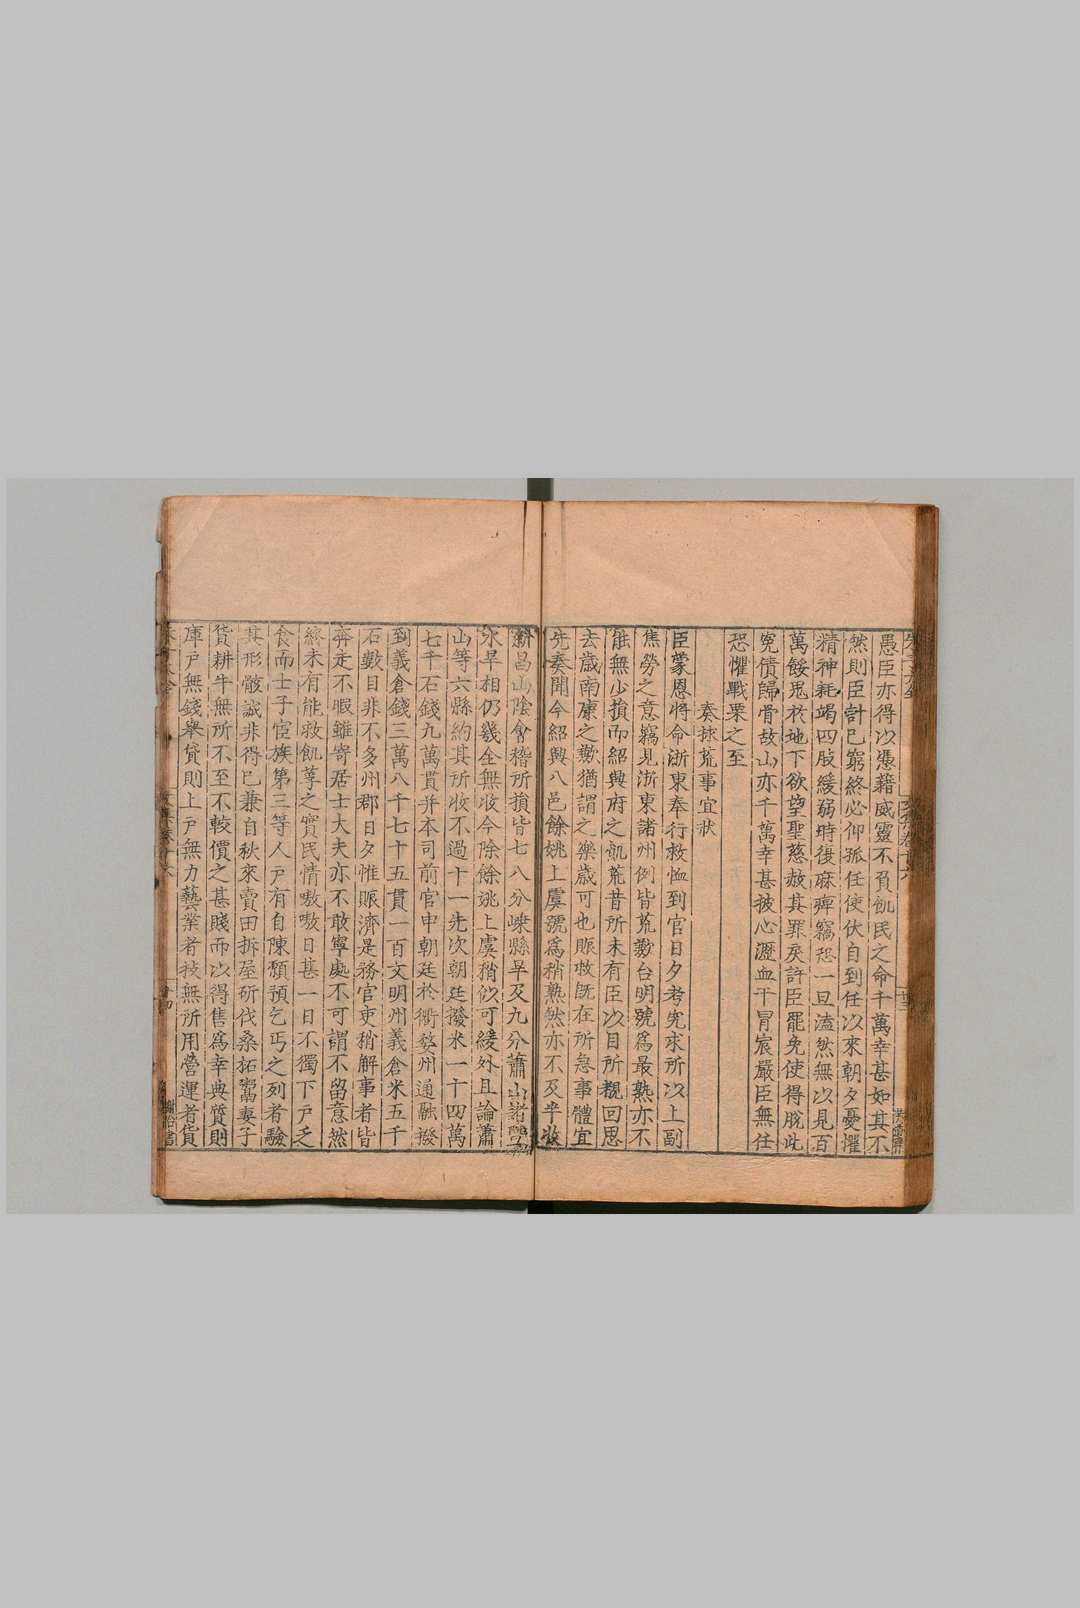 愚臣亦得以憑籍威靈不負飢民之命千萬幸甚如其不
然則臣計已窮終必仰孤任使伏自到任以來朝夕憂懼
精神耗竭四肢緩弱時復麻痺竊恐一旦溘然無以見百
萬餒鬼於地下欲望聖慈赦其罪戾許臣罷免使得脫此
冤債歸骨故山亦千萬幸甚披心瀝血干冒宸嚴臣無任
恐懼戰栗之至
奏捄荒事宜狀
臣蒙恩將命浙東奉行救恤到官日夕考究求所以上副
焦勞之意竊見浙東諸州例皆荒歉台明號爲最熟亦不
能無少損而紹興府之飢荒昔所未有臣以目所覩回思
去歲南康之歉猶謂之樂歲可也賑救既在所急事體宜
先奏聞今紹興八邑餘姚上虞號爲稍熟然亦不及半收
新昌山陰會稽所損皆七八分嵊縣旱及九分蕭山諸暨
水旱相仍幾全無收今除餘姚上虞稍似可緩外且論蕭
山等六縣約其所收不過十一先次朝廷撥米一十四萬
七千石錢九萬貫并本司前官申朝廷於衢婺州通融撥
到義倉錢三萬八千七十五貫一百文明州義倉米五千
石數目非不多州郡日夕惟賑濟是務官吏稍解事者皆
奔走不暇雖寄居士大夫亦不敢寧處不可謂不留意然
終未有能救飢莩之實民情嗷嗷日甚一日不獨下戶乏
食而士子宦族第三等人戶有自陳願預乞丐之列者驗
其形骸誠非得已兼自秋來賣田拆屋斫伐桑柘鬻妻子
貨耕牛無所不至不較價之甚賤而以得售爲幸典質則
庫戶無錢舉貸則上戶無力藝業者技無所用營運者貨